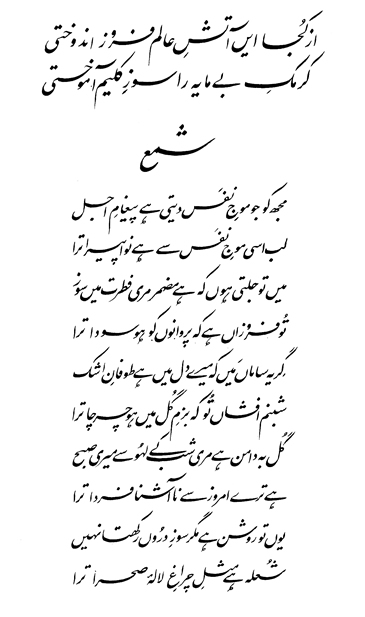 از کجا ایں آتشِ عالم فروز اندوختی
کرمکِ بے مایہ را سوزِ کلیم آموختی
شمع
مجھ کو جو موجِ نفَس دیتی ہے پیغامِ اجل
لب اسی موجِ نفَس سے ہے نوا پیرا ترا
میں تو جلتی ہوں کہ ہے مضمر مری فطرت میں سوز
تُو فروزاں ہے کہ پروانوں کو ہو سودا ترا
گریہ ساماں مَیں کہ میرے دل میں ہے طوفانِ اشک
شبنم افشاں تُو کہ بزمِ گُل میں ہو چرچا ترا
گُل بہ دامن ہے مری شب کے لہُو سے میری صبح
ہے ترے امروز سے ناآشنا فردا ترا
یوں تو روشن ہے مگر سوزِ درُوں رکھتا نہیں
شُعلہ ہے مثلِ چراغِ لالۂ صحرا ترا